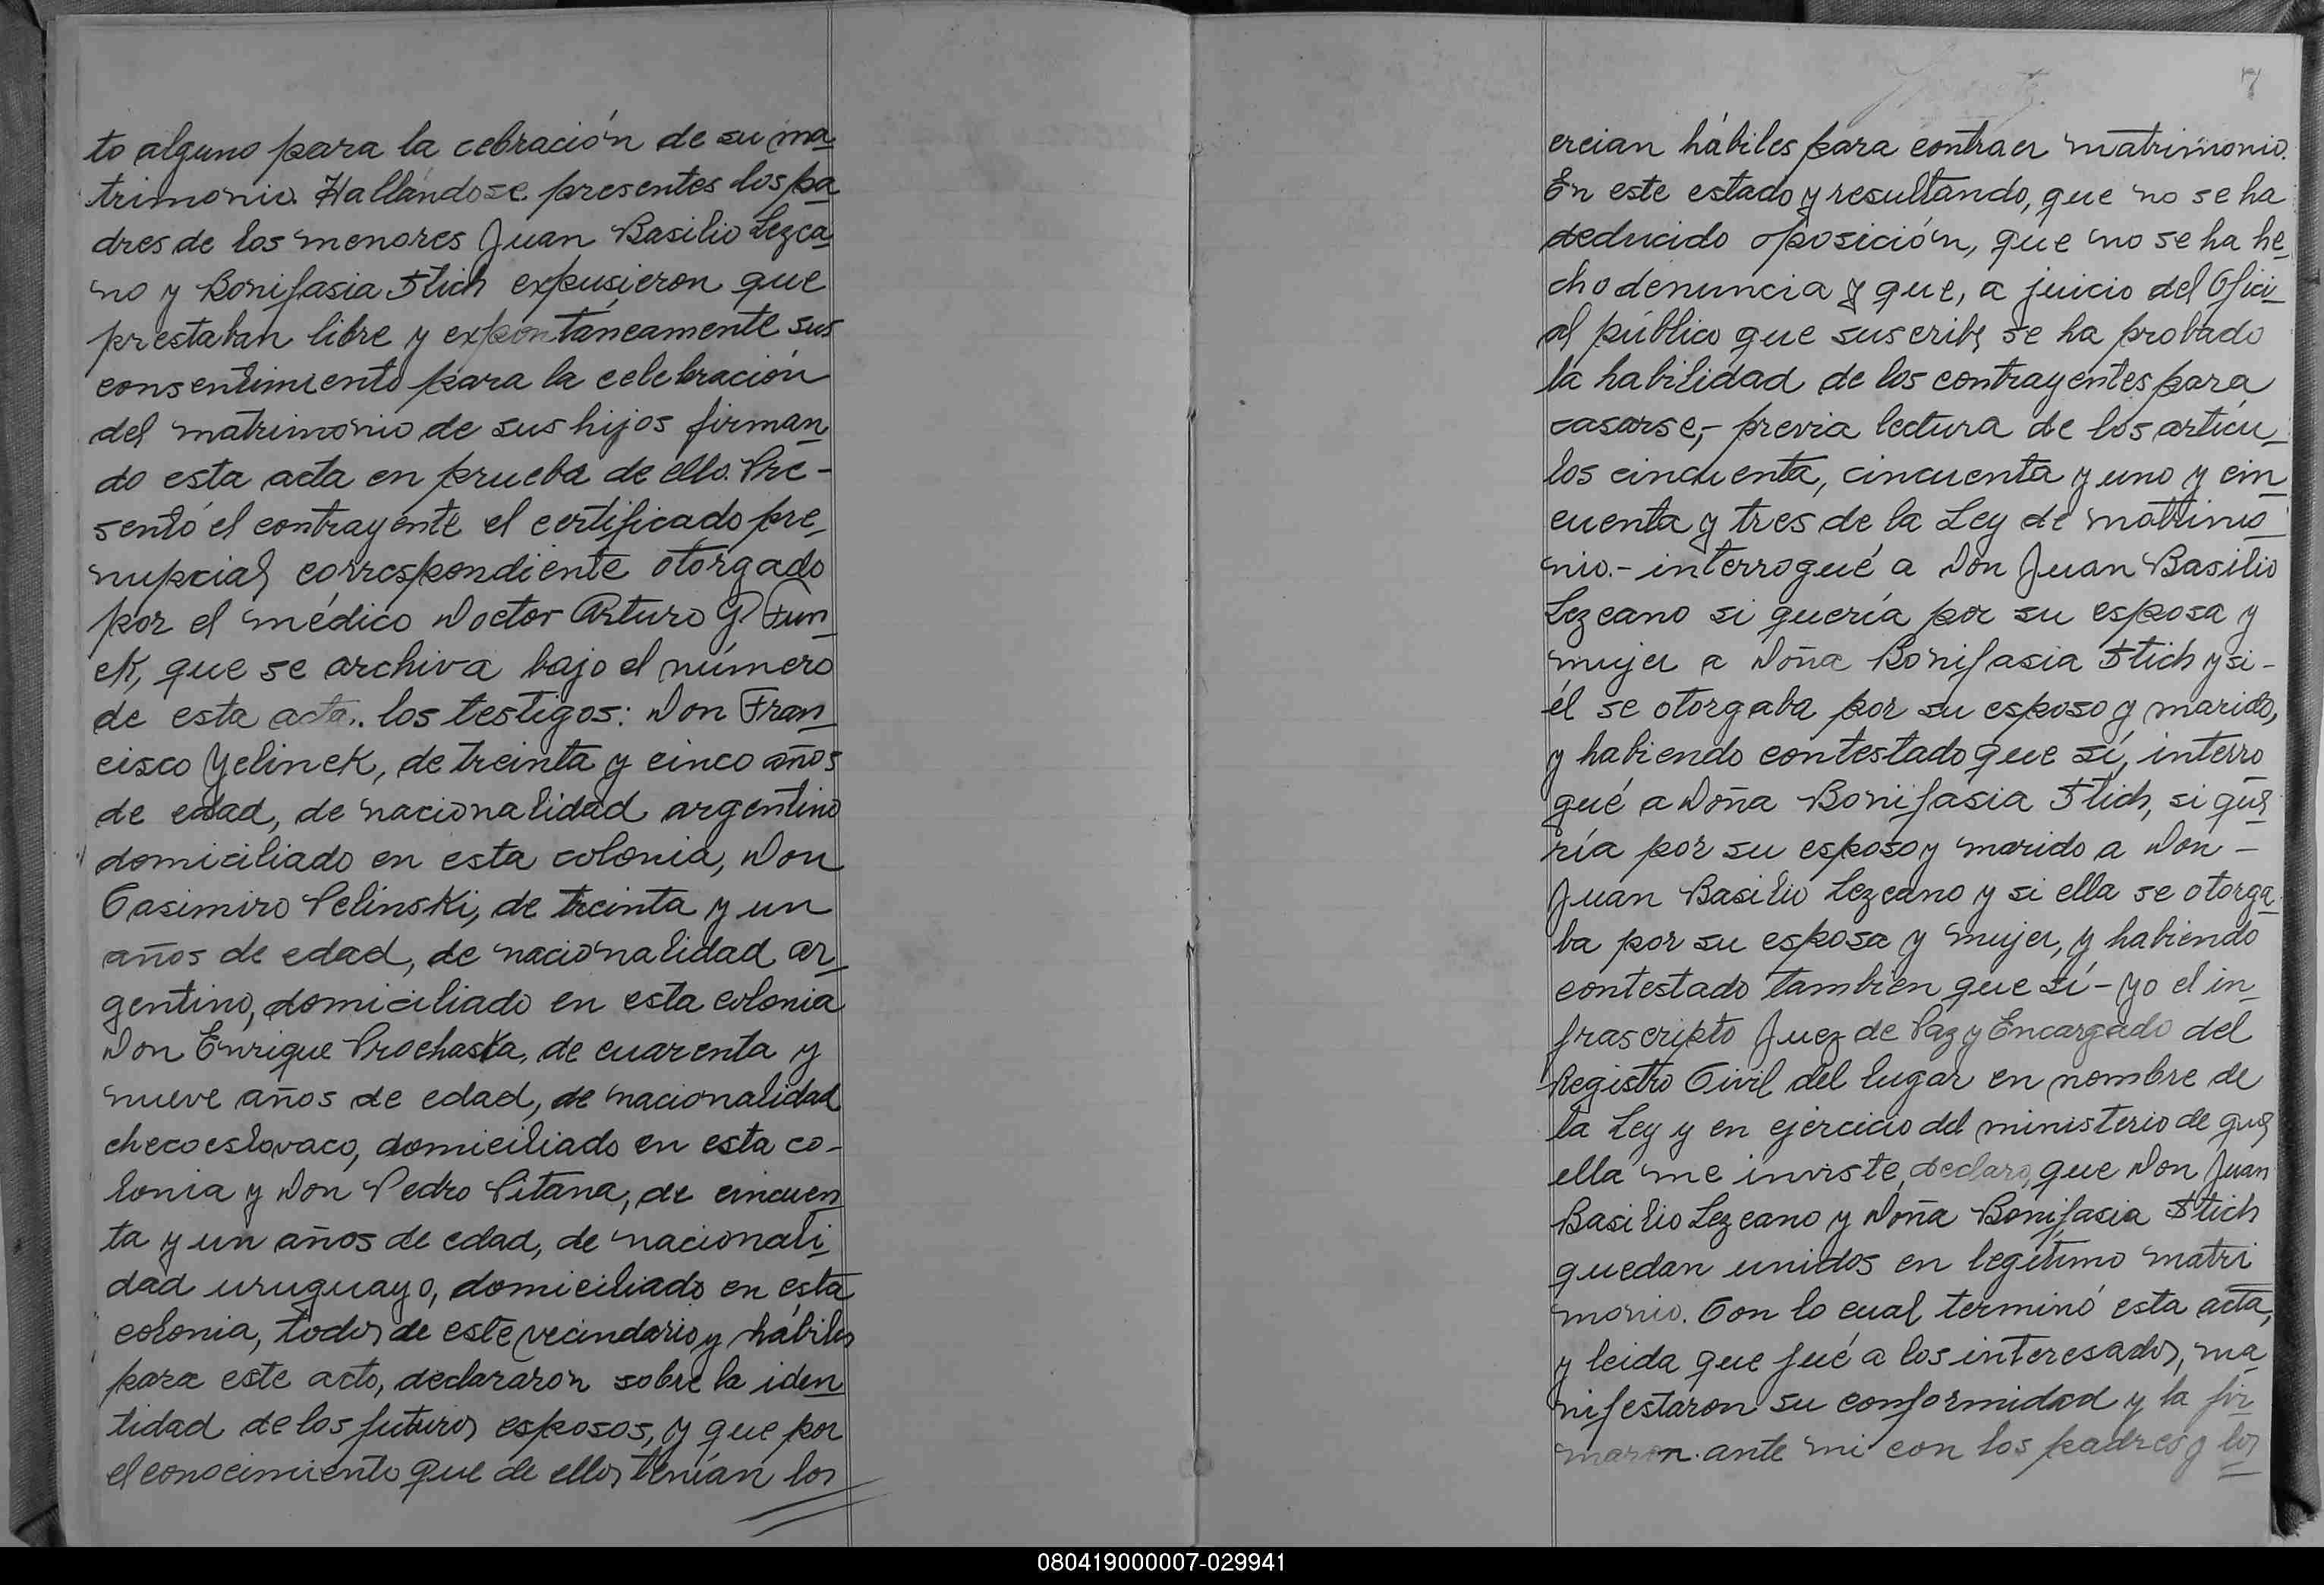 to alguno para la cebración de su ma
trimonio. Hallándose presentes los pa
dres de los menores Juan Basilio Lezca
no y Bonifasia Stich expusieron que
prestaban libre y expontáneamente sus
consentimiento para la celebración
del matrimonio de sus hijos firman
do esta acta en prueba de ello. Pre-
sentó el contrayente el certificado pre
nupcial correspondiente otorgado
por el médico Doctor Arturo G Fun
ek, que se archiva bajo el número
de esta acta.. los testigos: Don Fran
cisco Yelinek, de treinta y cinco años
de edad, de nacionalidad argentino
domiciliado en esta colonia, Don
Casimiro Pelinski, de treinta y un
años de edad, de nacionalidad ar
gentino, domiciliado en esta colonia
Don Enrique Prochaska, de cuarenta y
nueve años de edad, de nacionalidad
checoeslovaco, domiciliado en esta co-
lonia y Don Pedro Pitana, de cincuen
ta y un años de edad, de nacionali
dad uruguayo, domiciliado en esta
colonia, todos de este vecindario y hábiles
para este acto, declararon sobre la iden
tidad de los futuros esposos, y que por
el conocimiento que de ellos tenían los
7
creian hábiles para contraer matrimonio.
En este estado y resultando, que no se ha
deducido oposición, que no se ha he
cho denuncia y que, a juicio del Ofici
al público que suscribe se ha probado
la habilidad de los contrayentes para
casarse,- previa lectura de los artícu
los cincuenta, cincuenta y uno y cin
cuenta y tres de la Ley de matrimo
nio.- interrogué a Don Juan Basilio
Lezcano si quería por su esposa y
mujer a Doña Bonifasia Stich y si-
él se otorgaba por su esposo y marido,
y habiendo contestado que sí, interro
gué a Doña Bonifasia Stich, si que
ría por su esposo y marido a Don -
Juan Basilio Lezcano y si ella se otorga
ba por su esposa y mujer, y habiendo
contestado tambien que sí - yo el in
frascripto Juez de Paz y Encargado del
Registro Civil del lugar en nombre de
la Ley y en ejercicio del ministerio de que
ella me inviste, declaro, que Don Juan
Basilio Lezcano y Doña Bonifasia Stich
quedan unidos en legítimo matri
monio. Con lo cual terminó esta acta,
y leida que fué a los interesados, ma
nifestaron su conformidad y la fir
maron ante mi con los padres y los
080419000007-029941